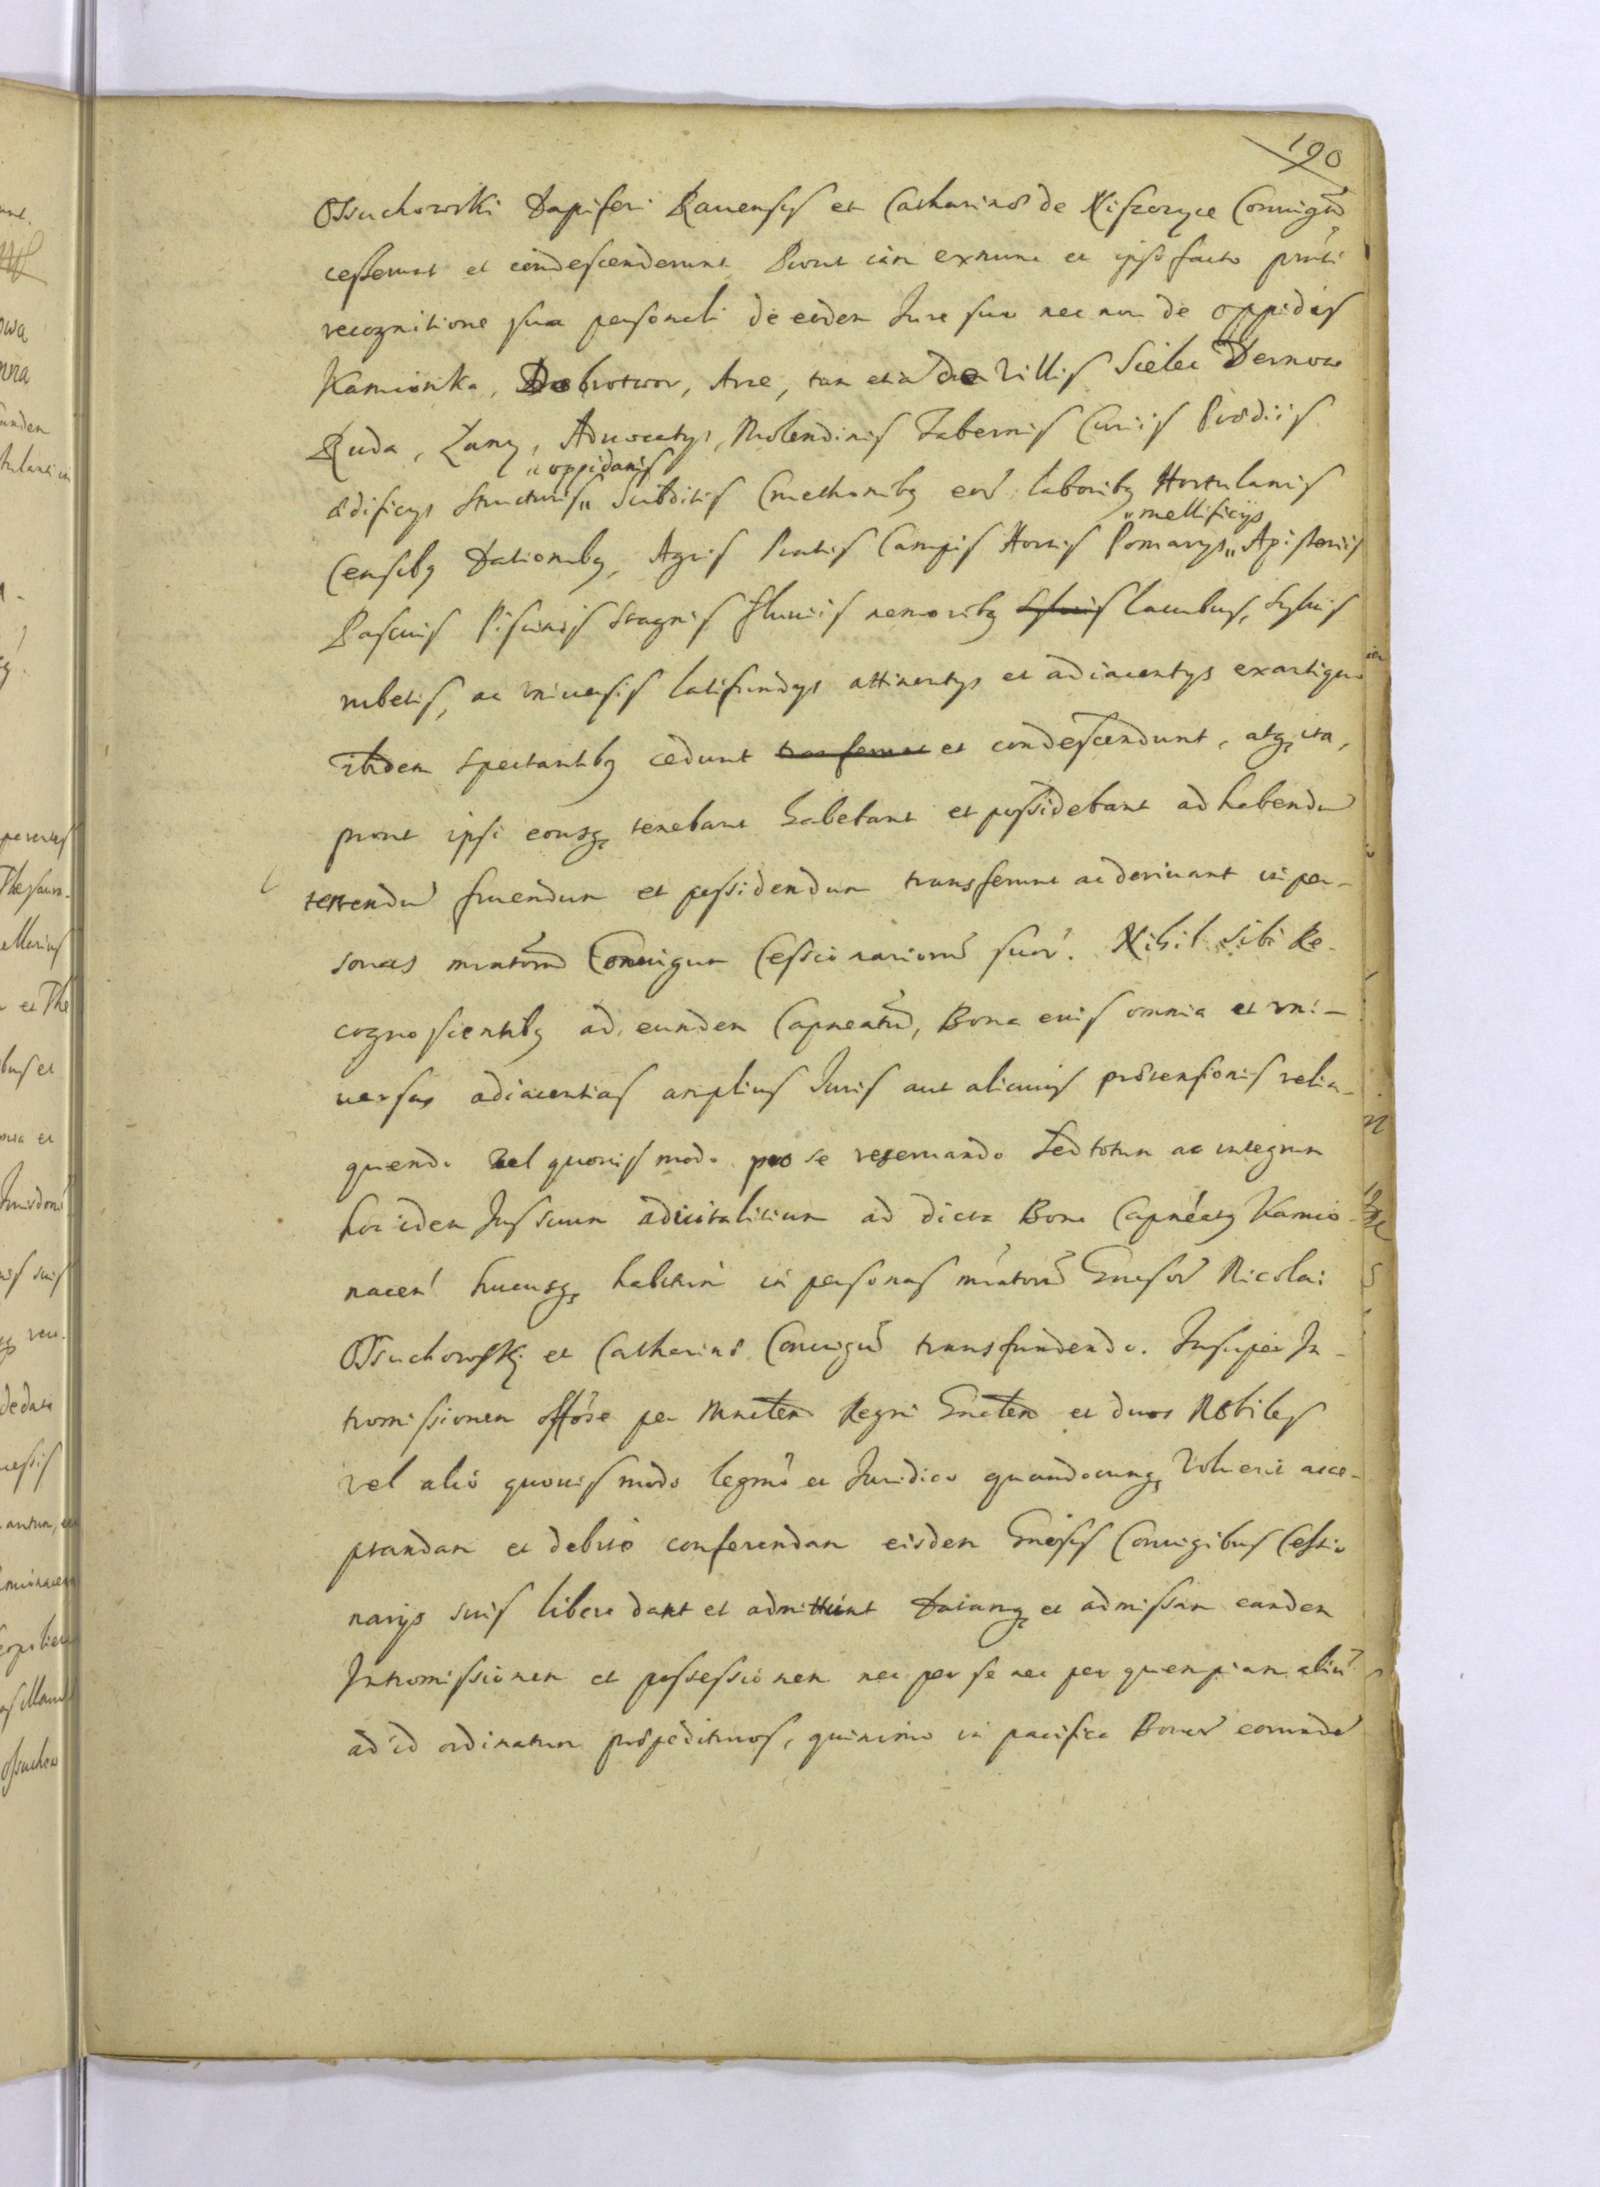 190
Ossuchowski Dapiferi Rauensis et Catharinæ de Niszczyce Coniugũ
cesserunt et condescenderunt Prout iam exnunc et ipso facto prńti
recognitione sua personali de eodem Iure suo nec non de oppidis
Kamionka, Dobrotwor, tam etiã de Villis Sielec Dernow
Ruda, Lany, Aduocatys, Molendinis Tabernis Curiis Prædiis
„oppidanis
ædificys structuris„ Subditis Cmethonibq eorũ laboribq Hortulanis
„mellificijs
Censibq Dationibq, Agris Pratis Campis Hortis Pomarys„ Apisteriis
Pascuis Piscinis Stagnis fluuiis nemoribq syluis lacubus, Syluis
rubetis, ac vniuersis latifundys attinentys et adiacentys exantiquo
ibidem spectantibq cedunt transferunt et condescendunt, atq ita,
prout ipsi eousq tenebant habebant et possidebant ad habendũ
tenendũ fruendum et possidendum transferunt ac deriuant in per-
sonas mńtorũ Coniugum Cessionariorũ suorũ. Nihil sibi Re-
cognoscentibq ad eundem Capneatũ, Bona eius omnia et vni-
uersas adiacentias amplius Iuris aut alicuius prætensionis relin-
quendo vel quouis modo pro se reseruando Sed totum ac integrum
hoc idem Ius suum aduitalitium ad dicta Bona Capneatq Kamio-
nacen hucusq habitum in personas mńtorũ Gnrsorũ Nicolai
Ossuchowskj et Catharinæ Coniugũ transfundendo. Insuper In-
tromissionem offóse per Mnrlem Regni Gnrlem et duos Nobiles
vel alio quouis modo legmo et Iuridico quandocunq Voluerit acce-
ptandam et debite conferendam eisdem Gnosis Coniugibus Cessio
narijs suis libere dant et admittunt Datamq et admissam eandem
Intromissionem et possessionem nec per se nec per quempiam aliũ
ad id ordinatum præpedituros, quinimo in pacifica Bonorũ eorundẽ